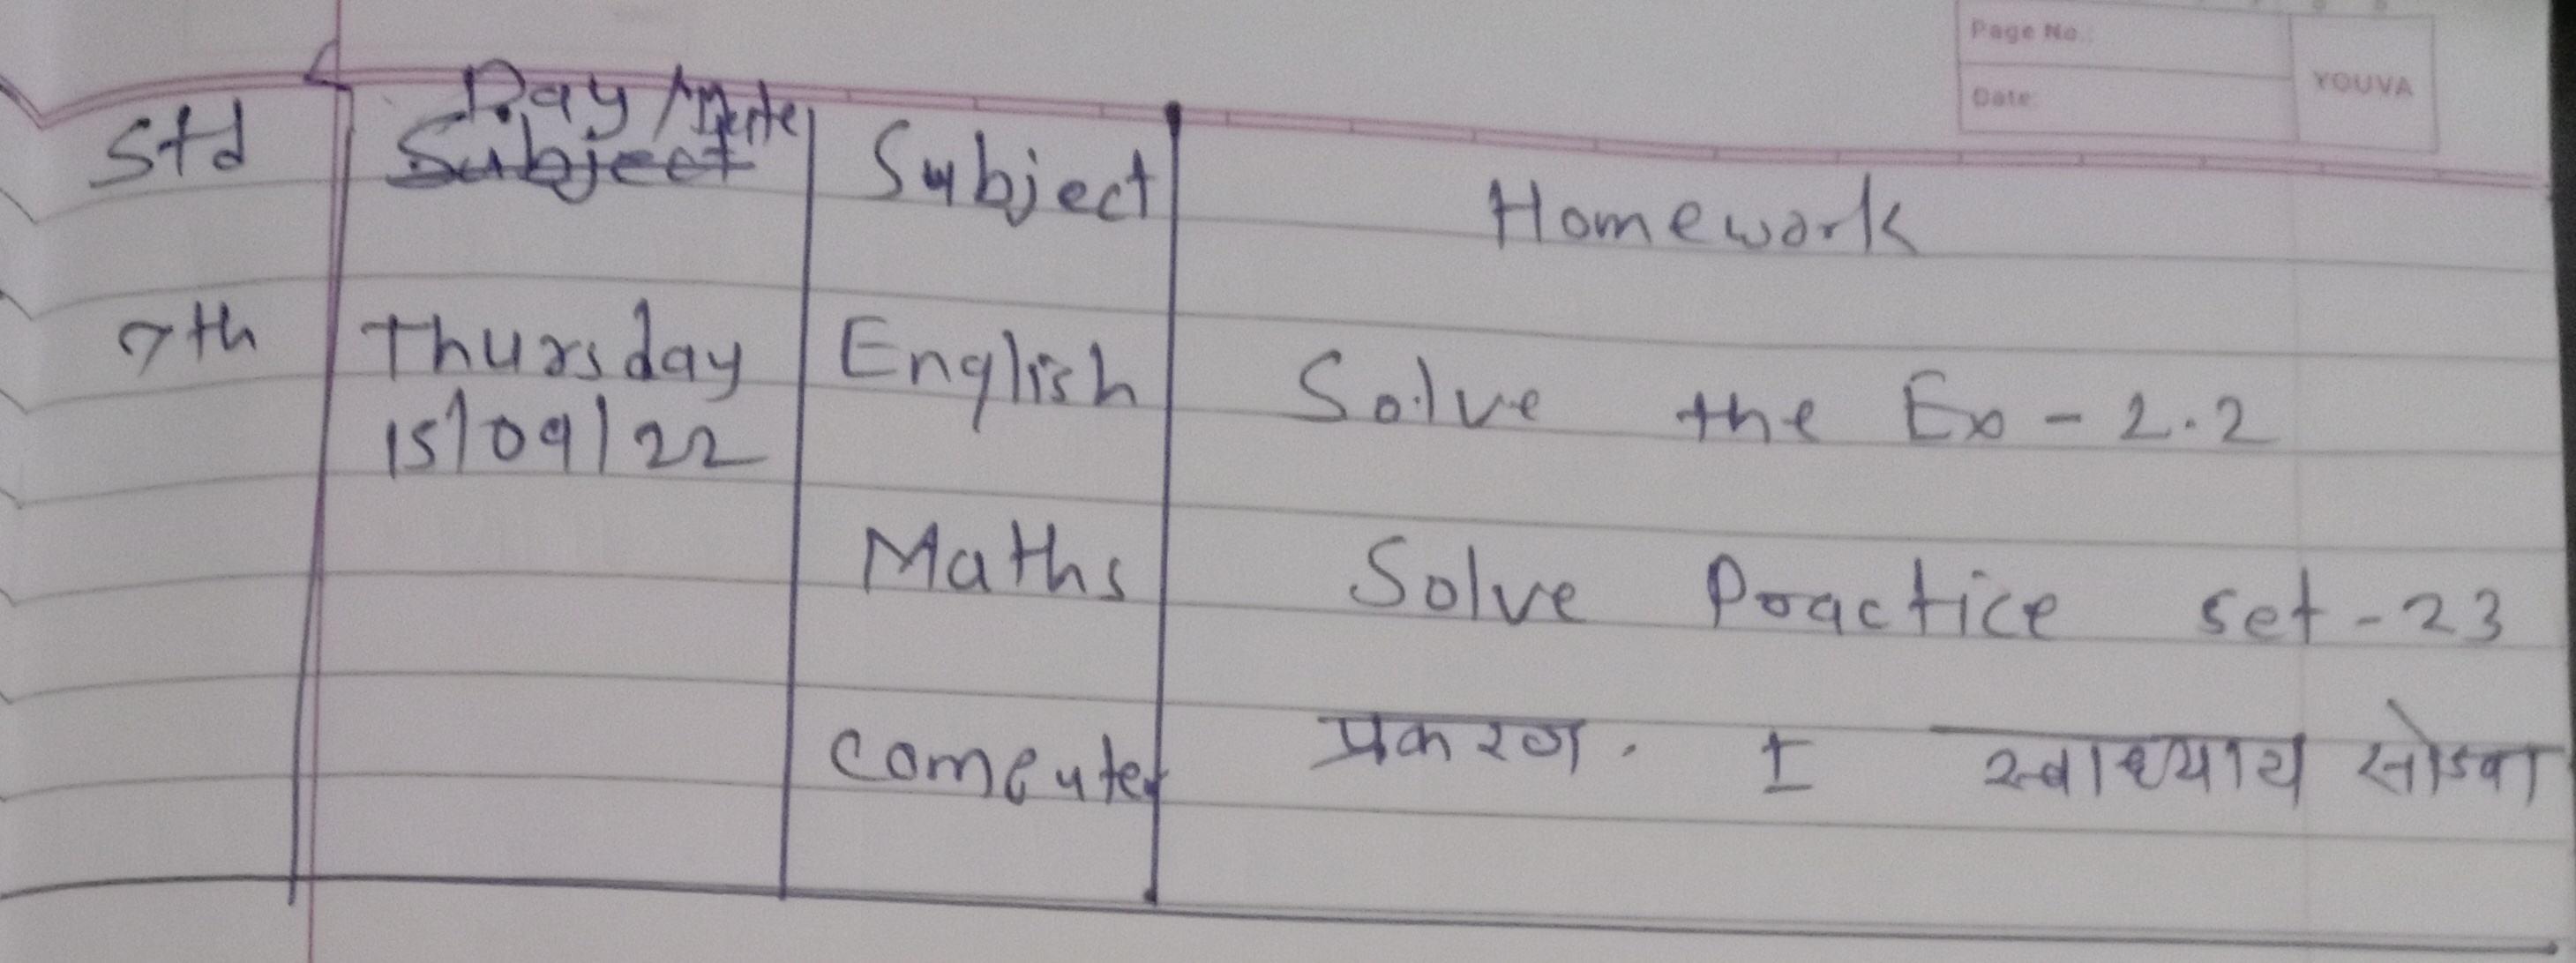 Page No.:
Date:
YOUVA
Std Day/Date Subject Homework
7th Thursday English Solve the Ex - 2.2
15/09/22
Maths Solve Practice set - 23
Computer प्रकरण. I स्वाध्याय सोडवा